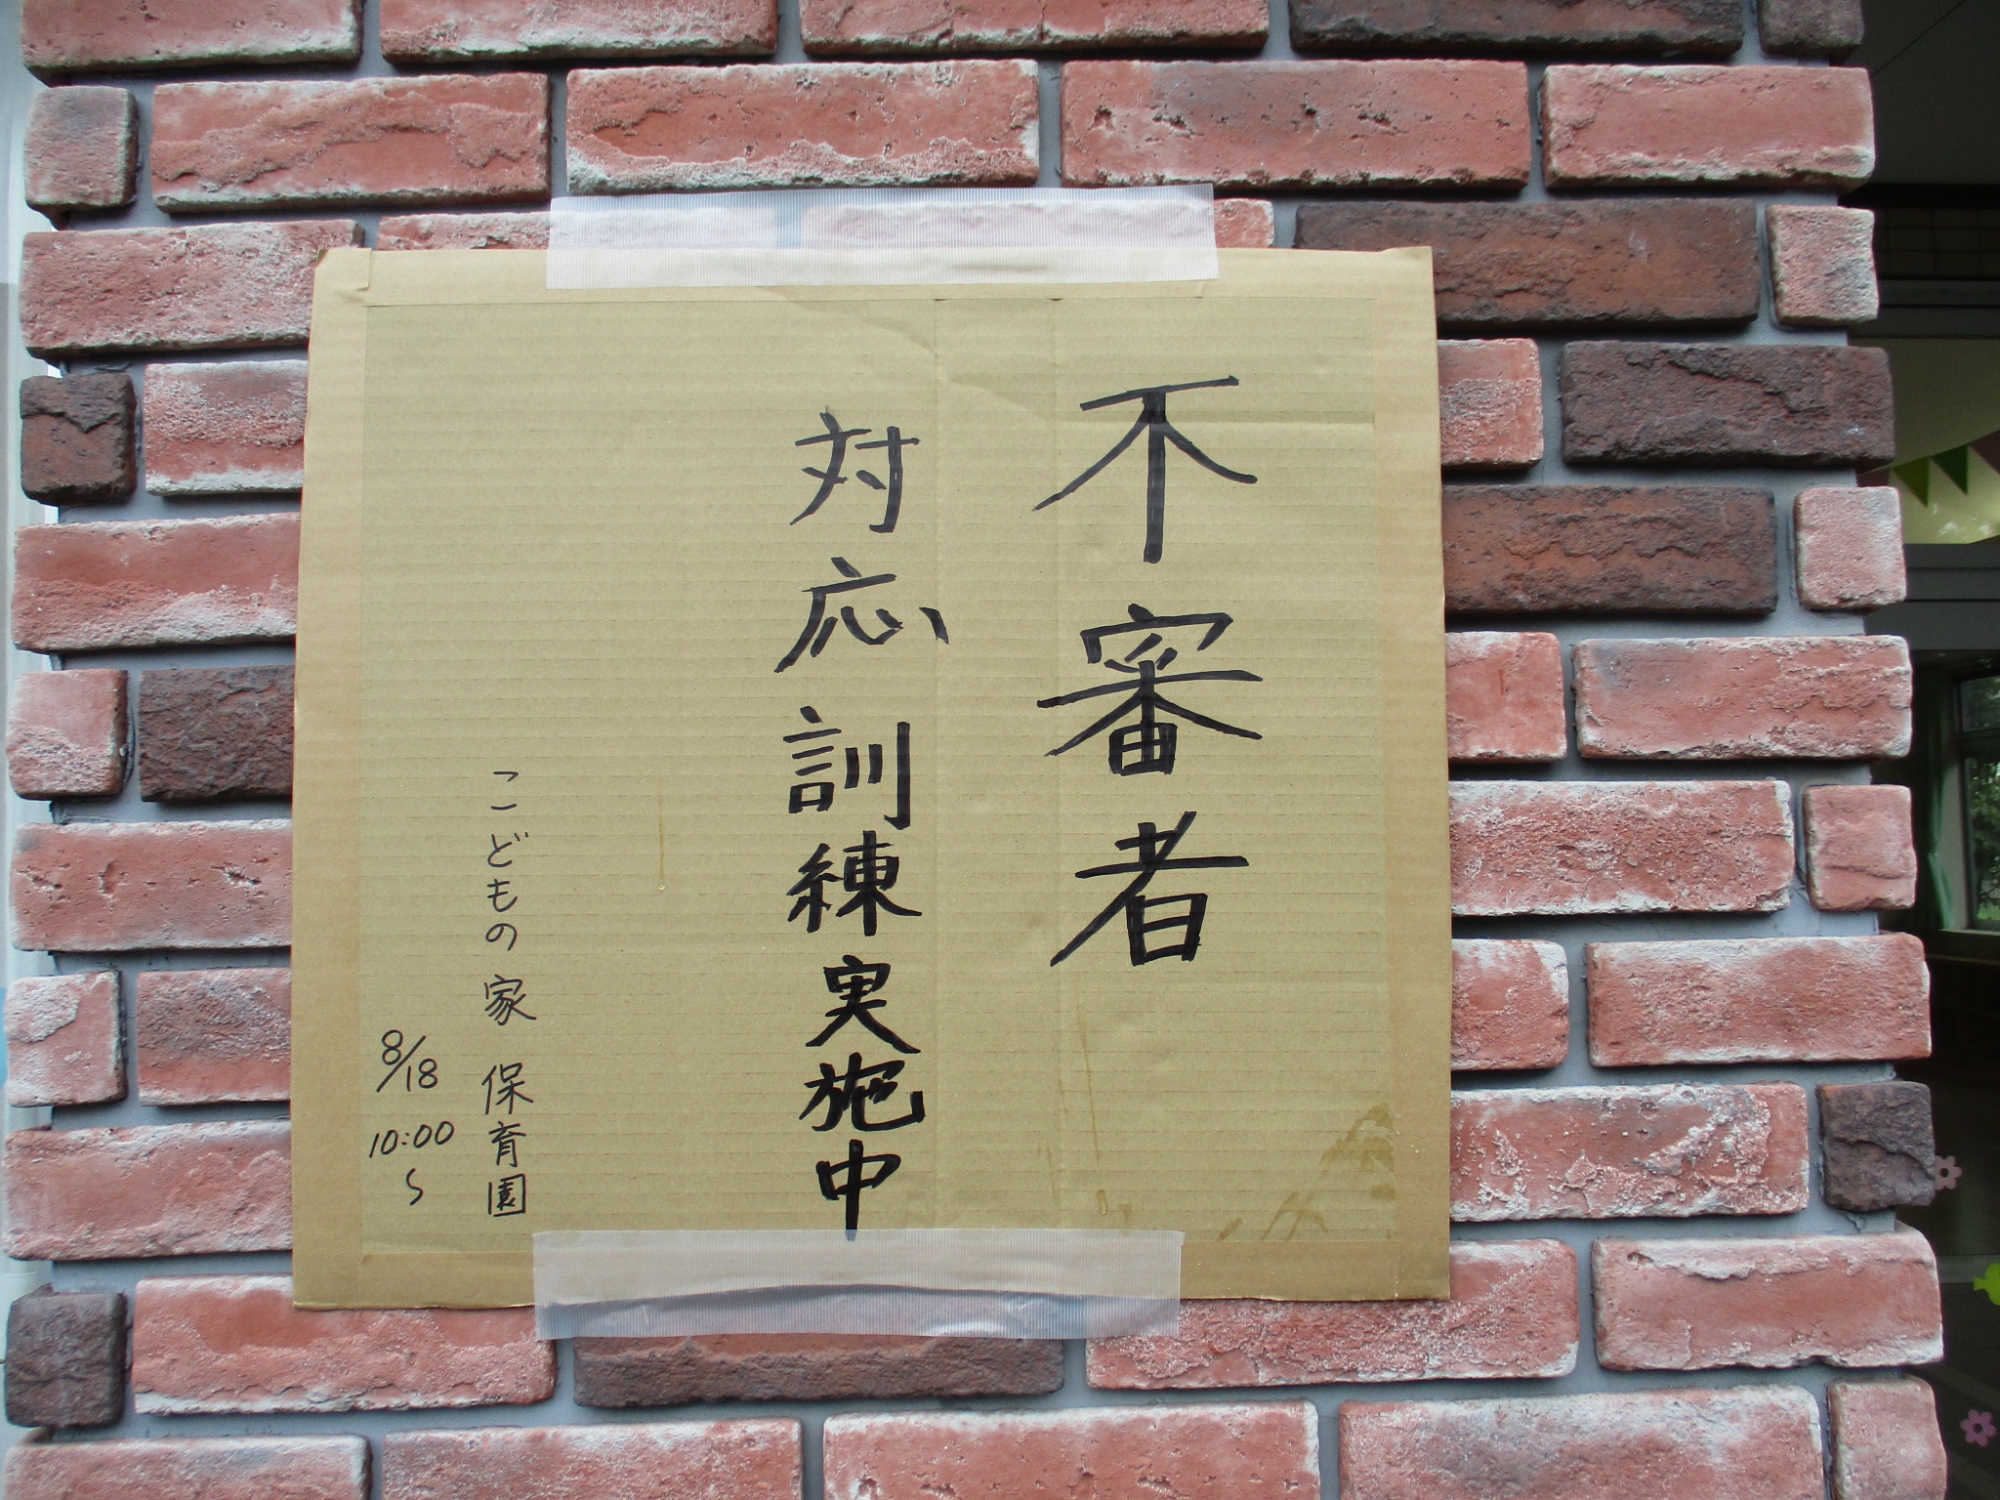 不審者
対応訓練実施中
こどもの家 保育園
8/18
10:00
〜